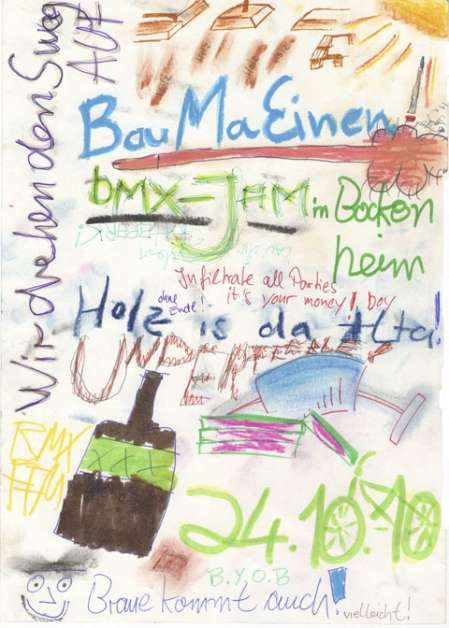 Wir drehen den Swag
AUF
Bau Ma Einen
bmx-JAM in Bocken
heim
Infiltrate all Parties
it's your money! boy
Holz ohne Ende! is da Alta!
24.10.10
B.Y.O.B
Braue kommt auch! vielleicht!